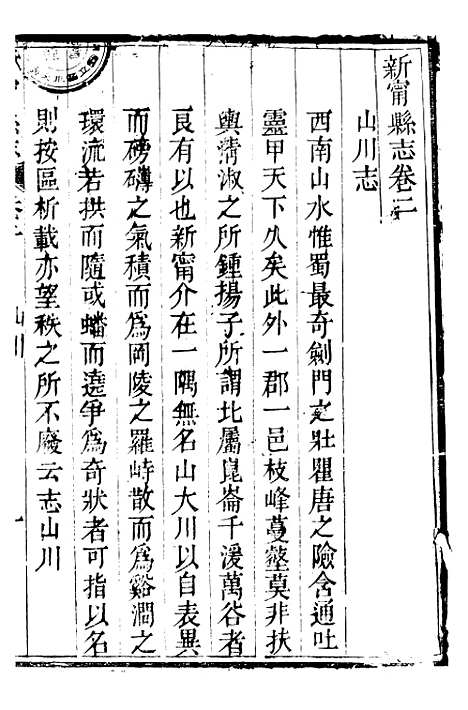 新甯縣志卷二
山川志
西南山水惟蜀最奇劍門之壯瞿唐之險含通吐
靈甲天下久矣此外一郡一邑枝峰蔓壑莫非扶
輿清淑之所鍾揚子所謂北屬崑崙千湲萬谷者
良有以也新甯介在一隅無名山大川以自表異
而磅礴之氣積而為岡陵之羅峙散而為谿澗之
環流若拱而隨或蟠而遶爭為奇狀者可指以名
則按區析載亦望秩之所不廢云志山川
山川
一